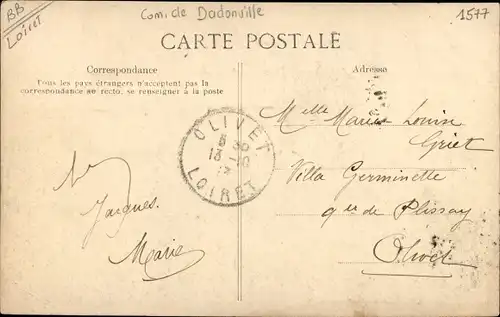 BB
Loiret
Com. de Dadonville
1577
CARTE POSTALE
Correspondance
Tous les pays étrangers n'acceptent pas la
correspondance au recto, se renseigner à la poste
Jacques
Marie
OLIVET
LOIRET
Adresse
Melle Marie Louise
Griet
Villa Germinette
de Plissay
Olivet